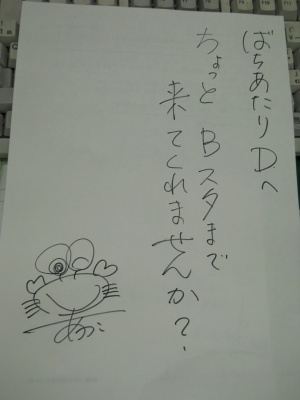 ばちあたりDへ
ちょっとBスタまで
来てくれませんか？